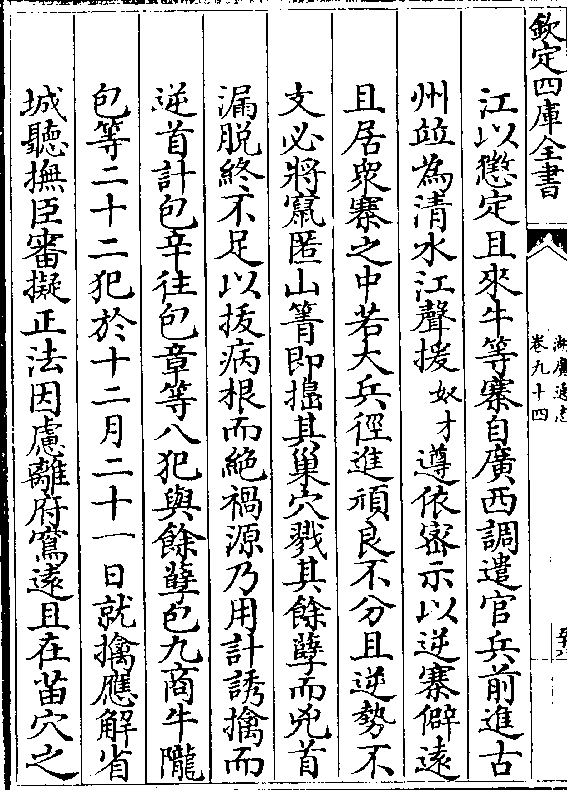 欽定四庫全書
湖廣通志
卷九十四
江以懲定且來牛等寨自廣西調遣官兵前進古
州竝為清水江聲援奴才遵依密示以逆寨僻遠
且居衆寨之中若大兵徑進頑良不分且逆勢不
支必將竄匿山箐即搗其巢穴戮其餘孽而兇首
漏脫終不足以拔病根而絶禍源乃用計誘擒而
逆首計包辛往包章等八犯與餘孽包九商牛隴
包等二十二犯於十二月二十一日就擒應解省
城聽撫臣審擬正法因慮離府窵遠且在苗穴之